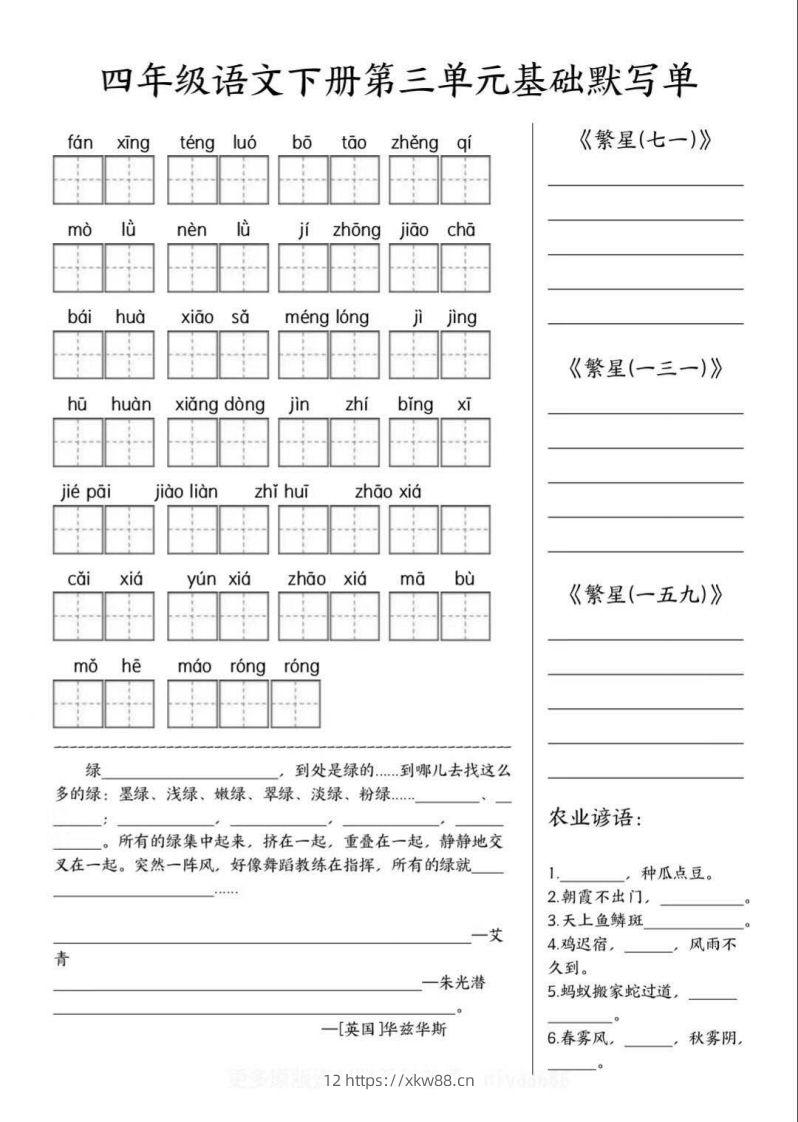 四年级语文下册第三单元基础默写单
fán xīng téng luó bō tāo zhěng qí
mò lǜ nèn lǜ jí zhōng jiāo chā
bái huà xiāo sǎ méng lóng jì jìng
hū huàn xiǎng dòng jìn zhí bǐng xī
jié pāi jiào liàn zhǐ huī zhāo xiá
cǎi xiá yún xiá zhāo xiá mā bù
mǒ hē máo róng róng
绿____________________，到处是绿的……到哪儿去找这么
多的绿：墨绿、浅绿、嫩绿、翠绿、淡绿、粉绿……________、__
______；___________，___________，___________，______
______。所有的绿集中起来，挤在一起，重叠在一起，静静地交
叉在一起。突然一阵风，好像舞蹈教练在指挥，所有的绿就____
____________________……
____________________—艾
青
____________________—朱光潜
____________________。
—[英国]华兹华斯
《繁星(七一)》
《繁星(一三一)》
《繁星(一五九)》
农业谚语：
1.________，种瓜点豆。
2.朝霞不出门，__________。
3.天上鱼鳞斑____________。
4.鸡迟宿，______，风雨不
久到。
5.蚂蚁搬家蛇过道，______
________。
6.春雾风，______，秋雾阴，
______。
12 https://xkw88.cn